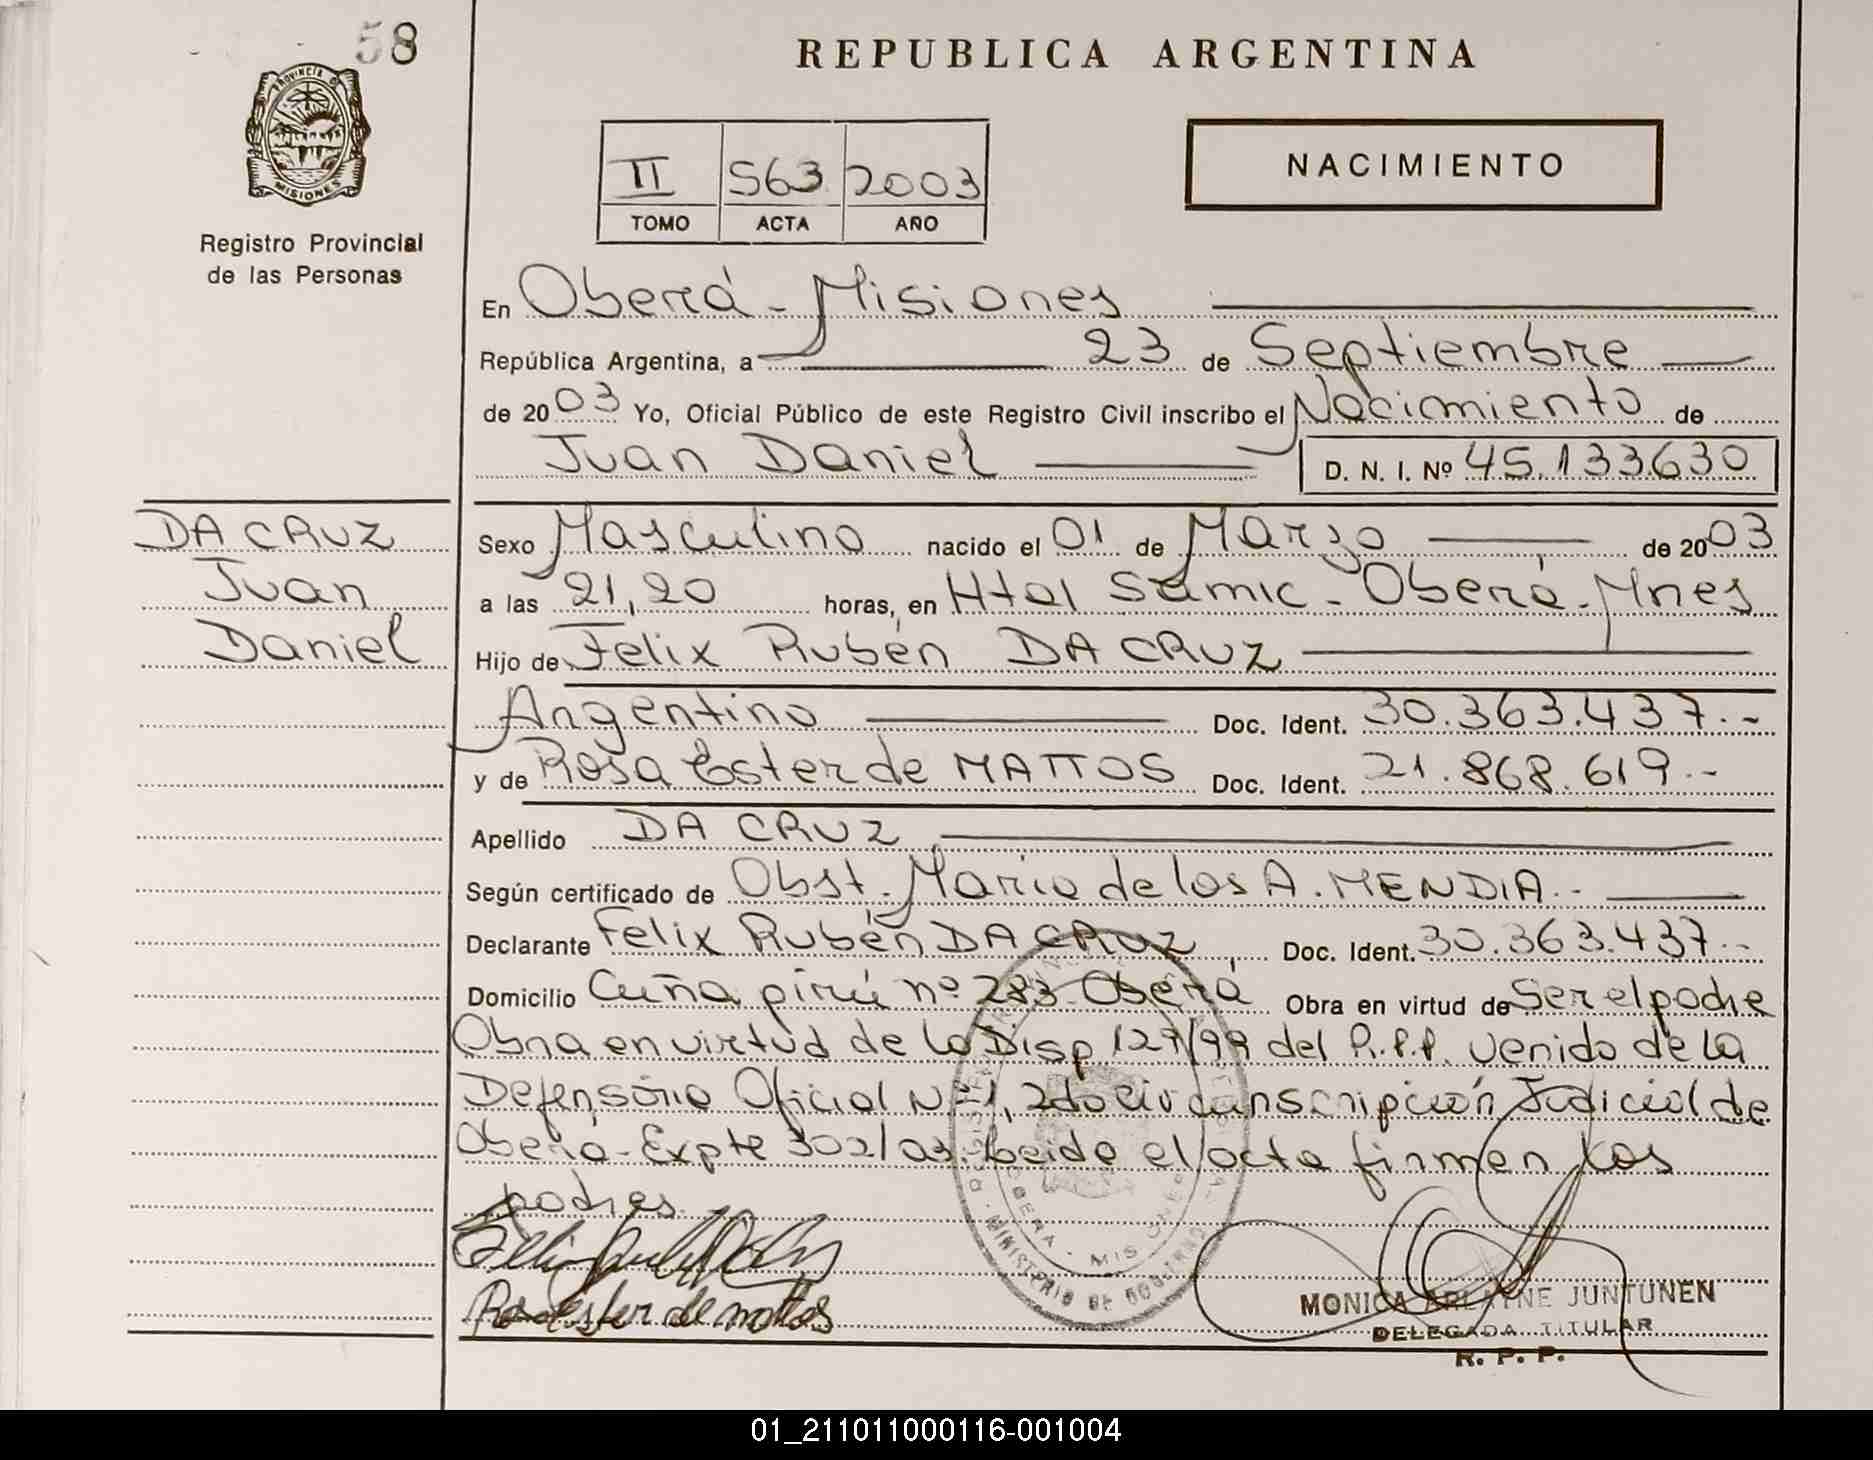 58
REPUBLICA ARGENTINA
PROVINCIA DE
MISIONES
Registro Provincial
de las Personas
II 563 2003
TOMO ACTA AÑO
NACIMIENTO
En Oberá - Misiones
República Argentina, a 23 de Septiembre
de 2003 Yo, Oficial Público de este Registro Civil inscribo el Nacimiento de
Juan Daniel D. N. I. Nº 45.133.630
DA CRUZ
Juan
Daniel
Sexo Masculino nacido el 01 de Marzo de 2003
a las 21,20 horas, en Htal Samic - Oberá - Mnes
Hijo de Felix Rubén DA CRUZ
Argentino Doc. Ident. 30.363.437.-
y de Rosa Ester de MATTOS Doc. Ident. 21.868.619.-
Apellido DA CRUZ
Según certificado de Obst. Maria de los A. MENDIA.-
Declarante Felix Rubén DA CRUZ, Doc. Ident. 30.363.437.-
Domicilio Cuña pirú nº 283 Oberá Obra en virtud de Ser el padre
Obra en virtud de la Disp 129/99 del R.P.P. venido de la
Defensoria Oficial Nº 1, 2da circunscripción Judicial de
Oberá - Expte 302/03. Leida el acta firman los
padres.
Rosa ester de mattos
MINISTERIO DE GOBIERNO
OBERA - MISIONES
MONICA ARLAYNE JUNTUNEN
DELEGADA TITULAR
R. P. P.
01_211011000116-001004